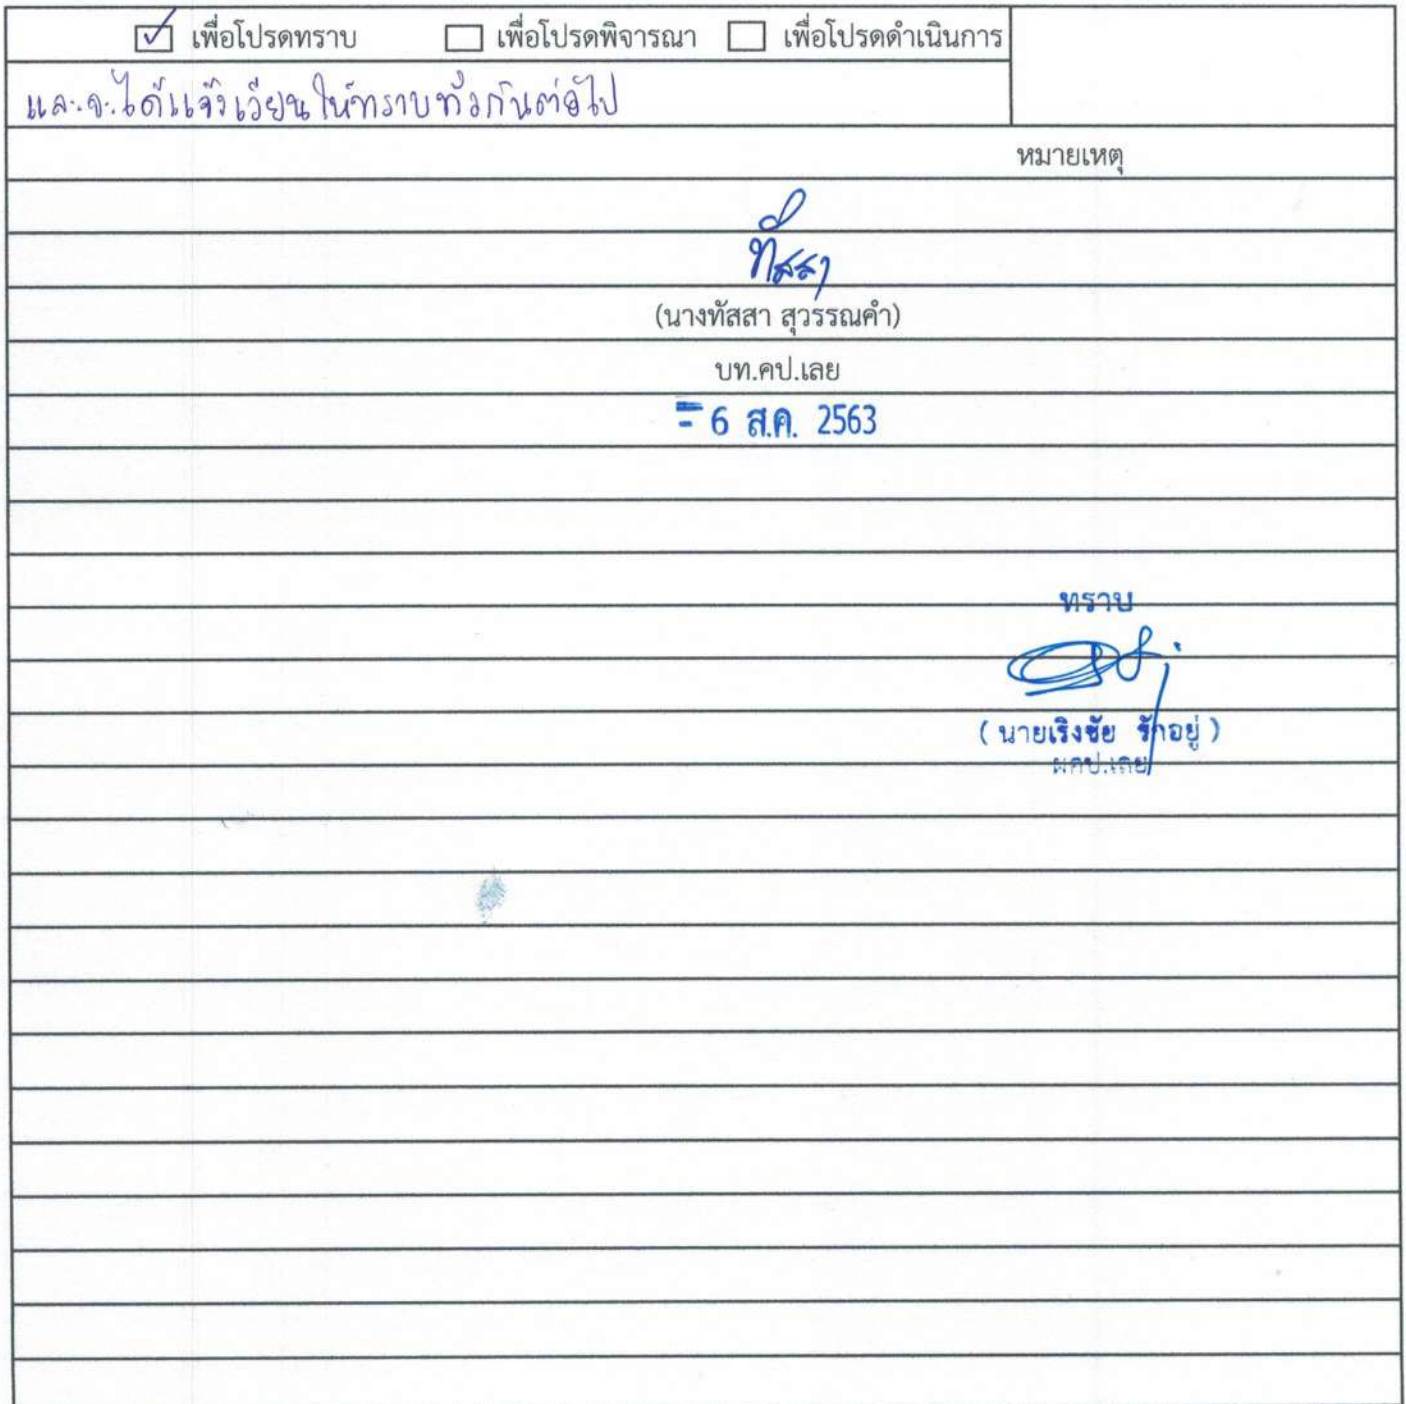 ☑ เพื่อโปรดทราบ ☐ เพื่อโปรดพิจารณา ☐ เพื่อโปรดดำเนินการ
และจะได้แจ้งเวียนให้ทราบทั่วกันต่อไป
หมายเหตุ
ทัสสา
(นางทัสสา สุวรรณคำ)
บท.คป.เลย
- 6 ส.ค. 2563
ทราบ
( นายเริงชัย รักอยู่ )
ผคป.เลย